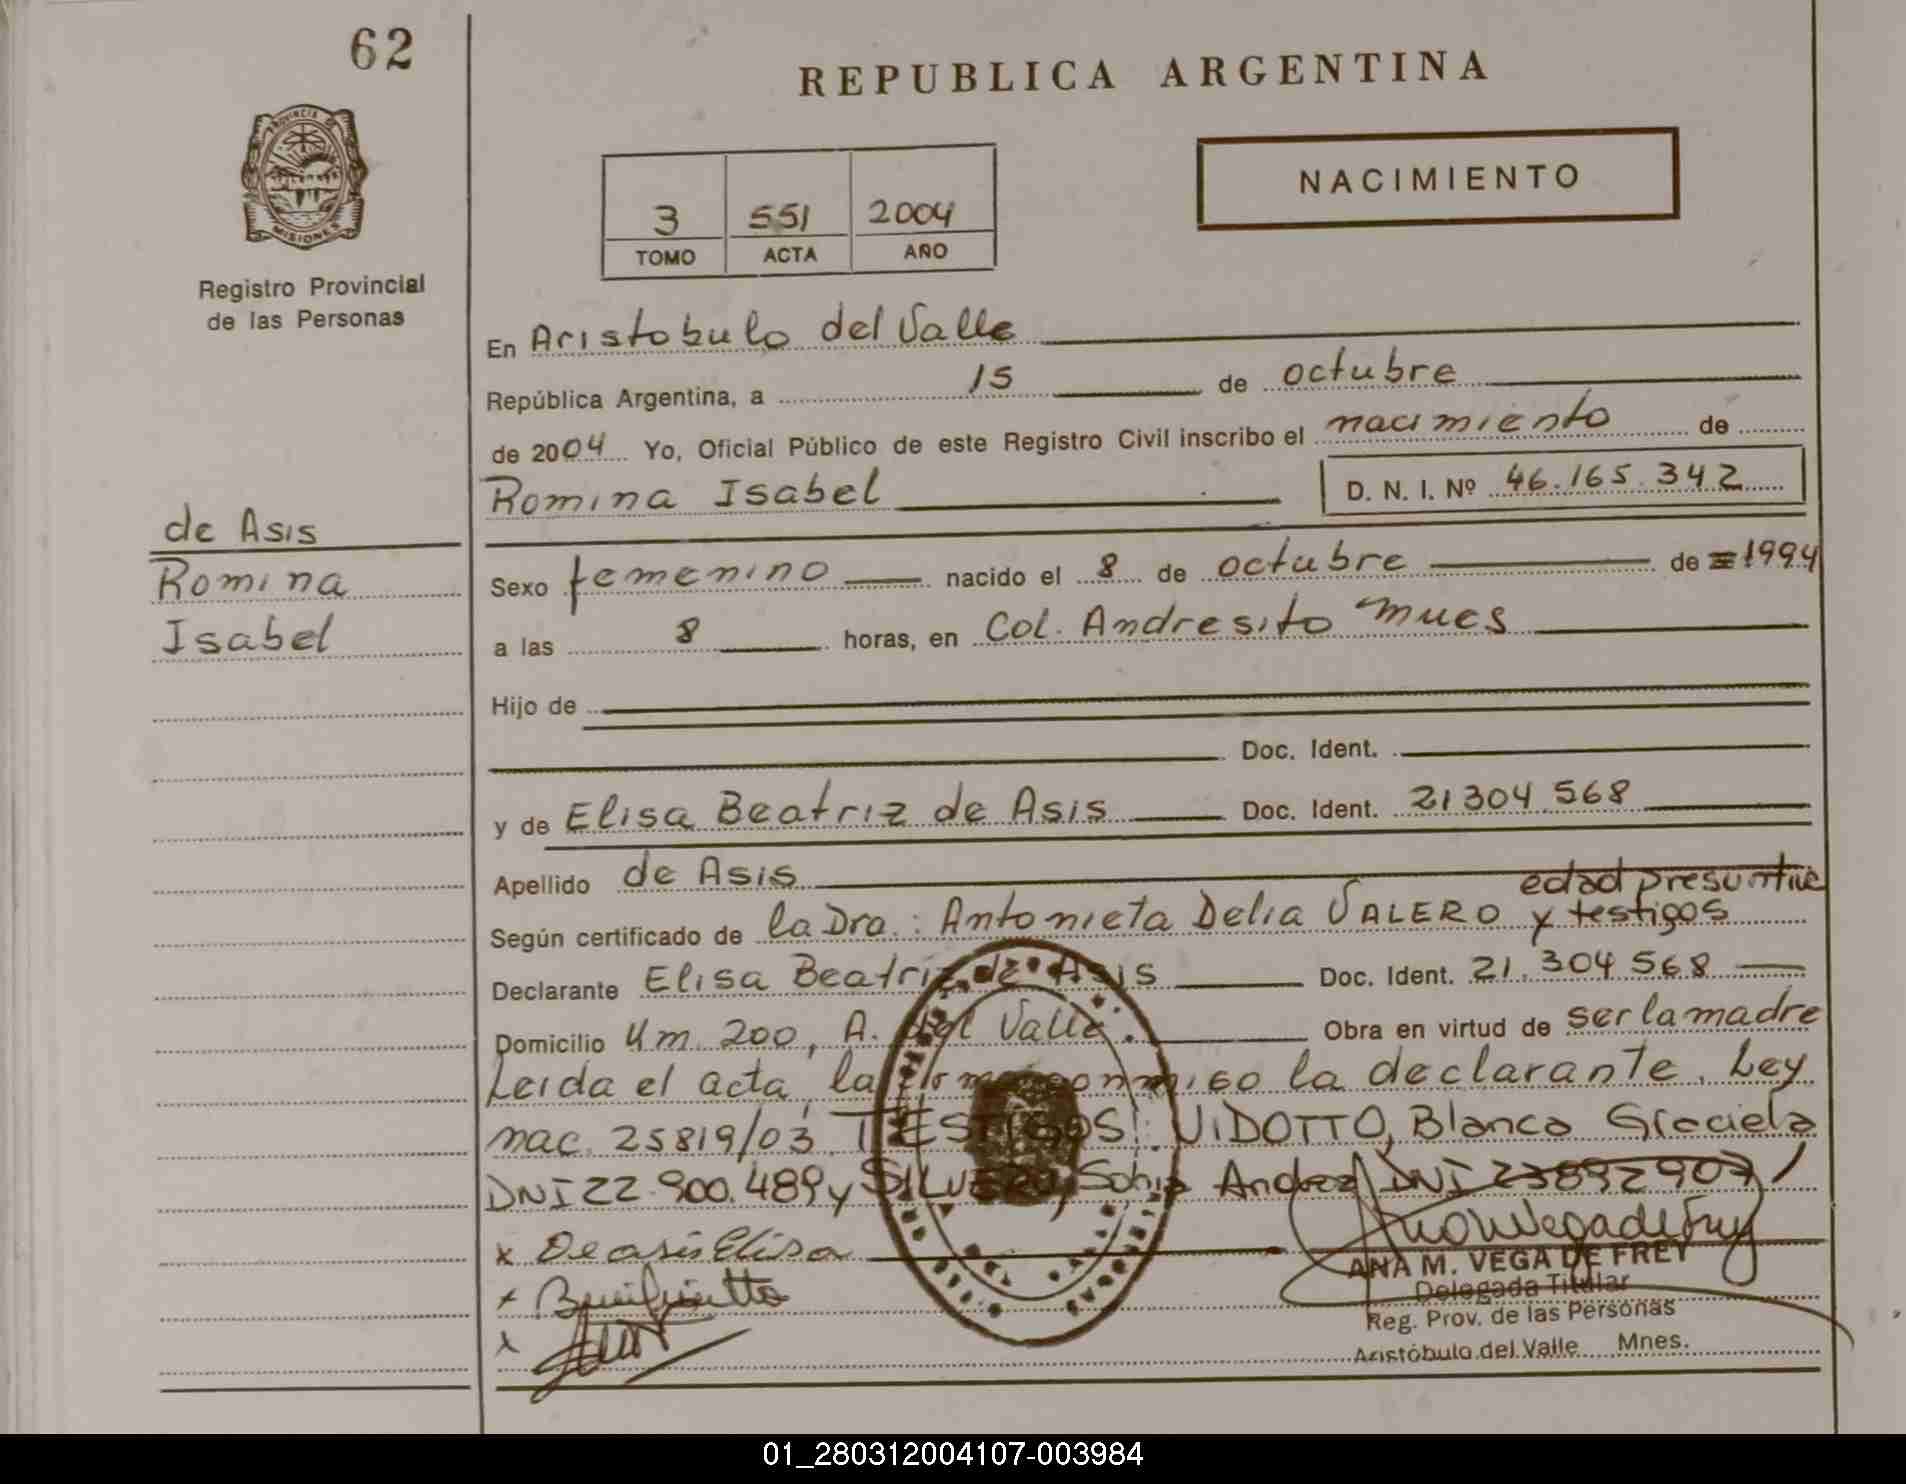 62
REPUBLICA ARGENTINA
PROVINCIA DE
MISIONES
Registro Provincial
de las Personas
NACIMIENTO
3 551 2004
TOMO ACTA AÑO
En Aristobulo del Valle
República Argentina, a 15 de octubre
de 2004 Yo, Oficial Público de este Registro Civil inscribo el nacimiento de
Romina Isabel D. N. I. Nº 46.165.342
de Asis
Romina
Isabel
Sexo femenino nacido el 8 de octubre de 1994
a las 8 horas, en Col. Andresito Mnes
Hijo de
Doc. Ident.
y de Elisa Beatriz de Asis Doc. Ident. 21304.568
Apellido de Asis
edad presuntiva
Según certificado de la Dra.: Antonieta Delia VALERO y testigos
Declarante Elisa Beatriz de Asis Doc. Ident. 21.304.568
Domicilio Km. 200, A. del Valle. Obra en virtud de ser la madre
Leida el acta, la firma conmigo la declarante. Ley
nac. 25819/03. TESTIGOS: VIDOTTO, Blanca Graciela
DNI 22.900.489 y SILVERO, Andrea DNI 23892907
x De asis Elisa
x
x
ANA M. VEGA DE FREY
Delegada Titular
Reg. Prov. de las Personas
Aristóbulo del Valle Mnes.
01_280312004107-003984